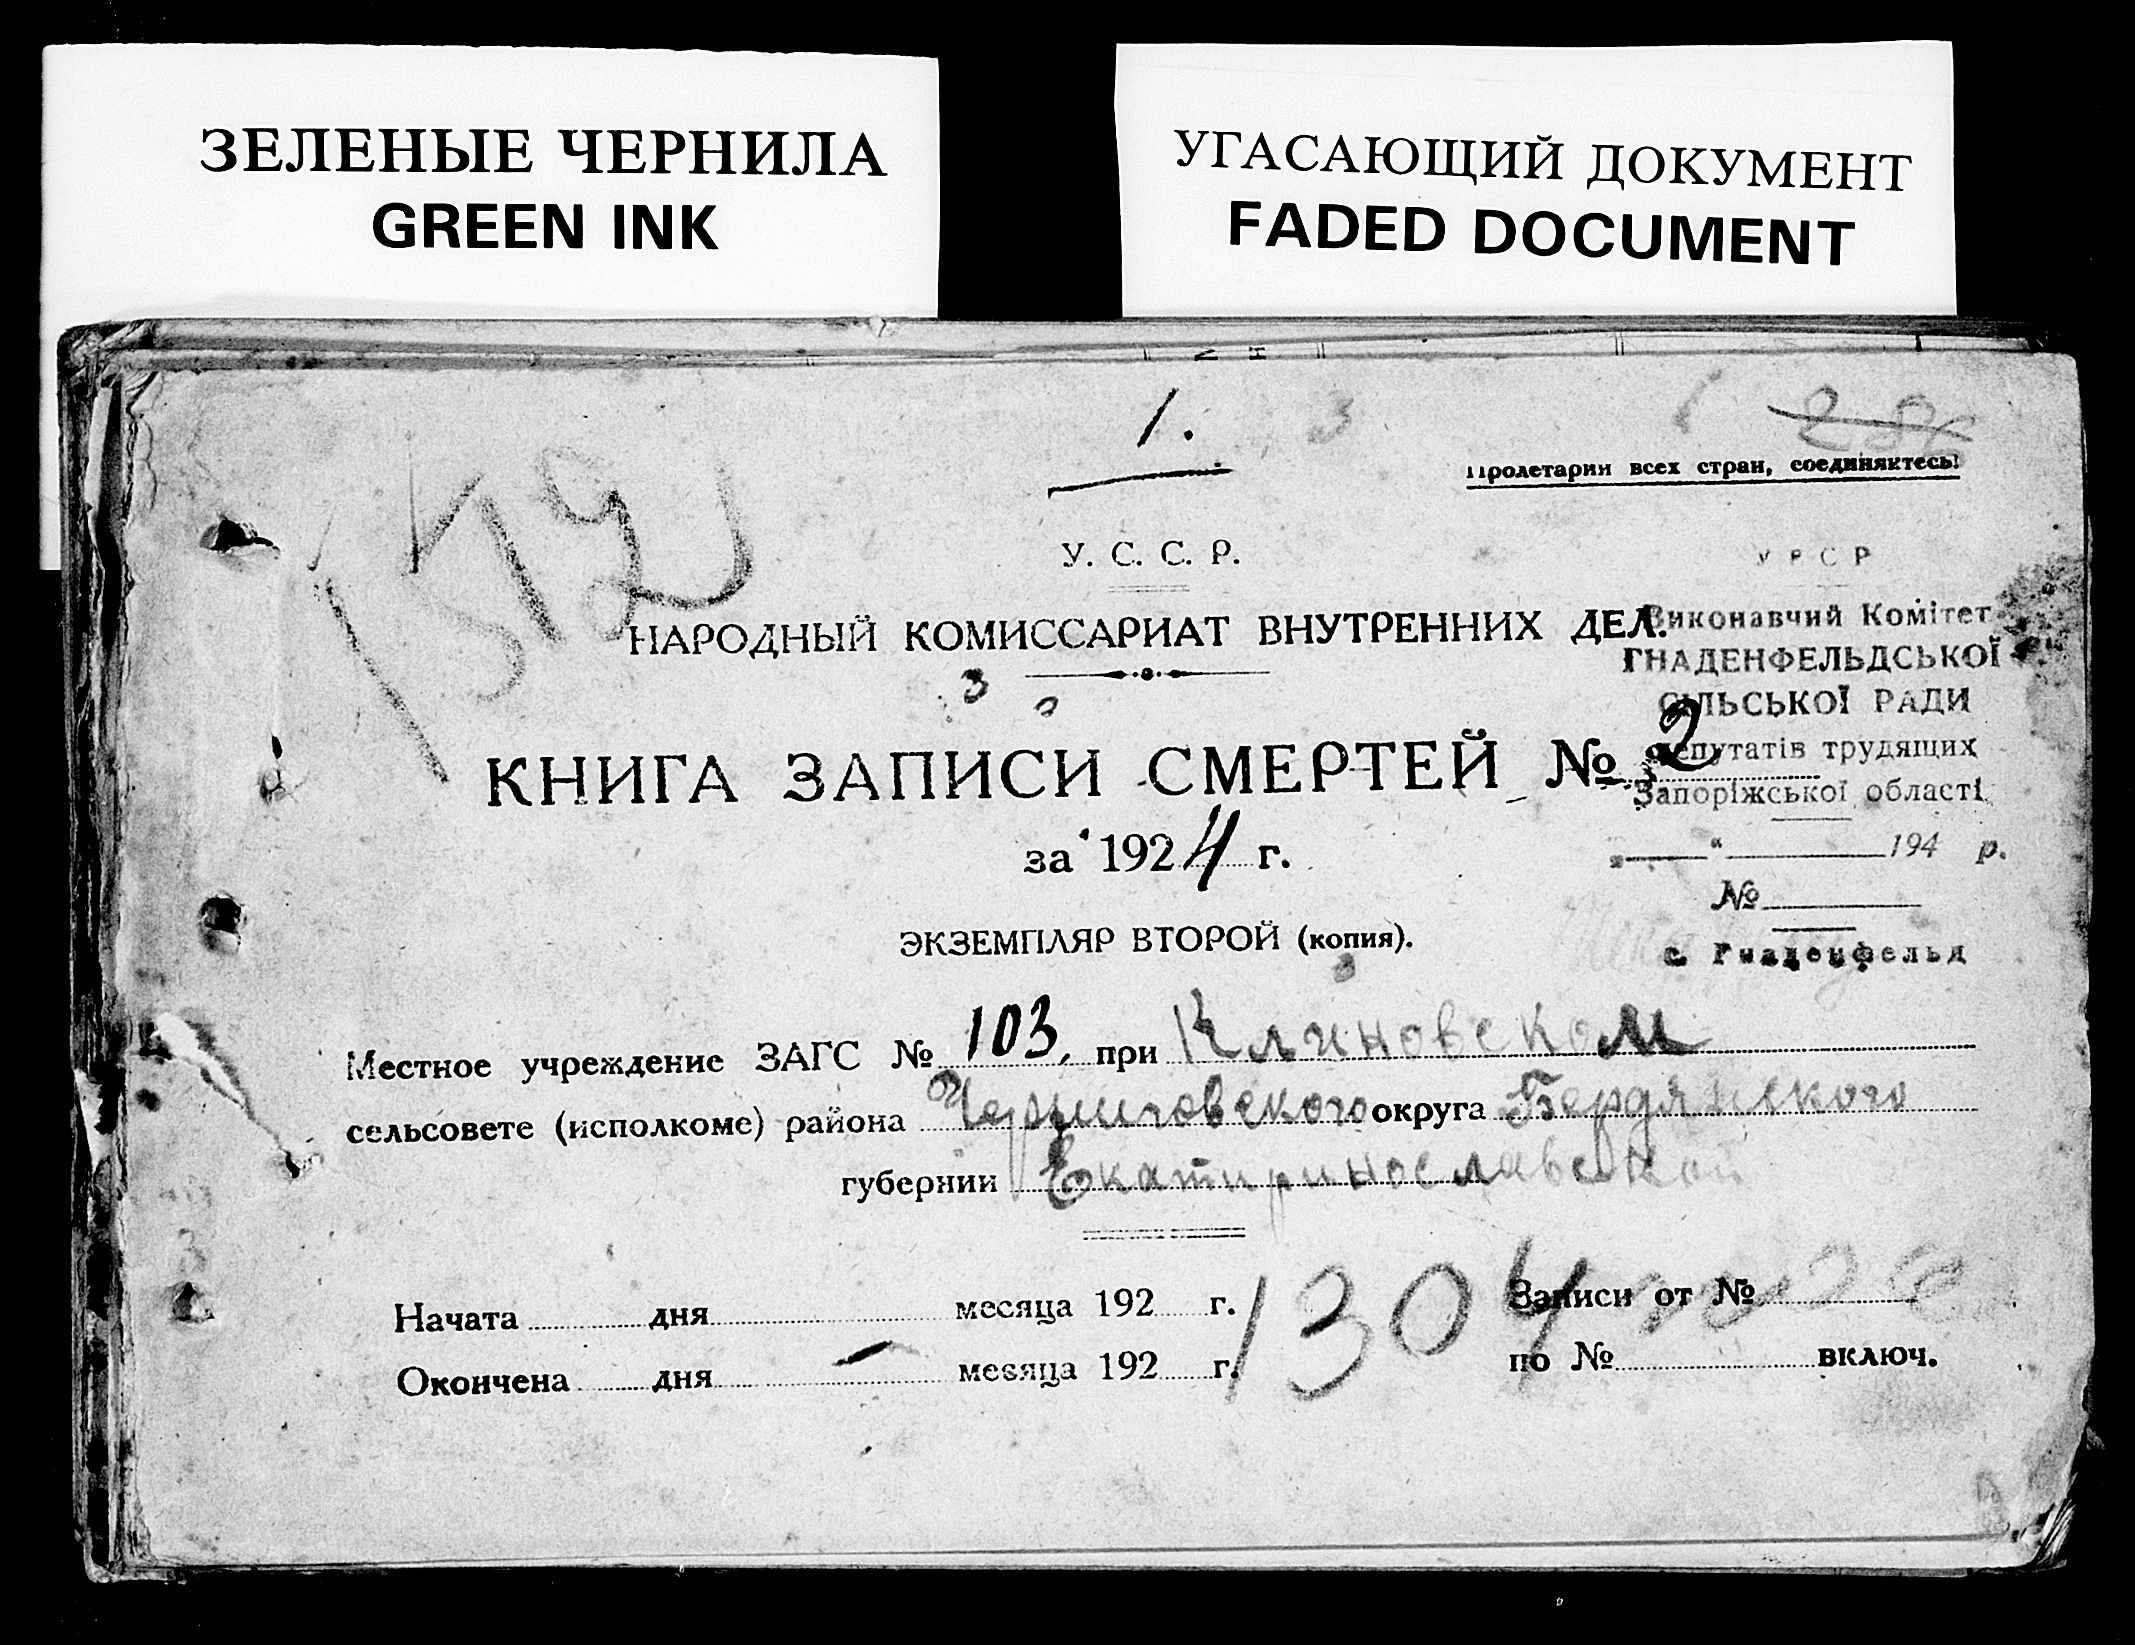 ЗЕЛЕНЫЕ ЧЕРНИЛА
GREEN INK
УГАСАЮЩИЙ ДОКУМЕНТ
FADED DOCUMENT
1.
3
Пролетарии всех стран, соединяйтесь!
У. С. С. Р.
НАРОДНЫЙ КОМИССАРИАТ ВНУТРЕННИХ ДЕЛ.
КНИГА ЗАПИСИ СМЕРТЕЙ № 2
за 1924 г.
ЭКЗЕМПЛЯР ВТОРОЙ (копия).
У Р С Р
Виконавчий Комітет
ГНАДЕНФЕЛЬДСЬКОЇ
СІЛЬСЬКОЇ РАДИ
депутатів трудящих
Запоріжської області
„ “ 194 р.
№
с. Гнаденфельд
Местное учреждение ЗАГС № 103, при Клиновском
сельсовете (исполкоме) района Черниговского округа Бердянского
губернии Екатиринославской
Начата дня месяца 192 г.
Окончена дня месяца 192 г.
1304
Записи от №
по № включ.